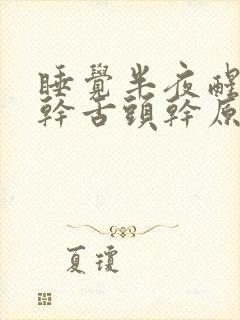 睡覺半夜醒
幹舌頭幹原
夏瓊